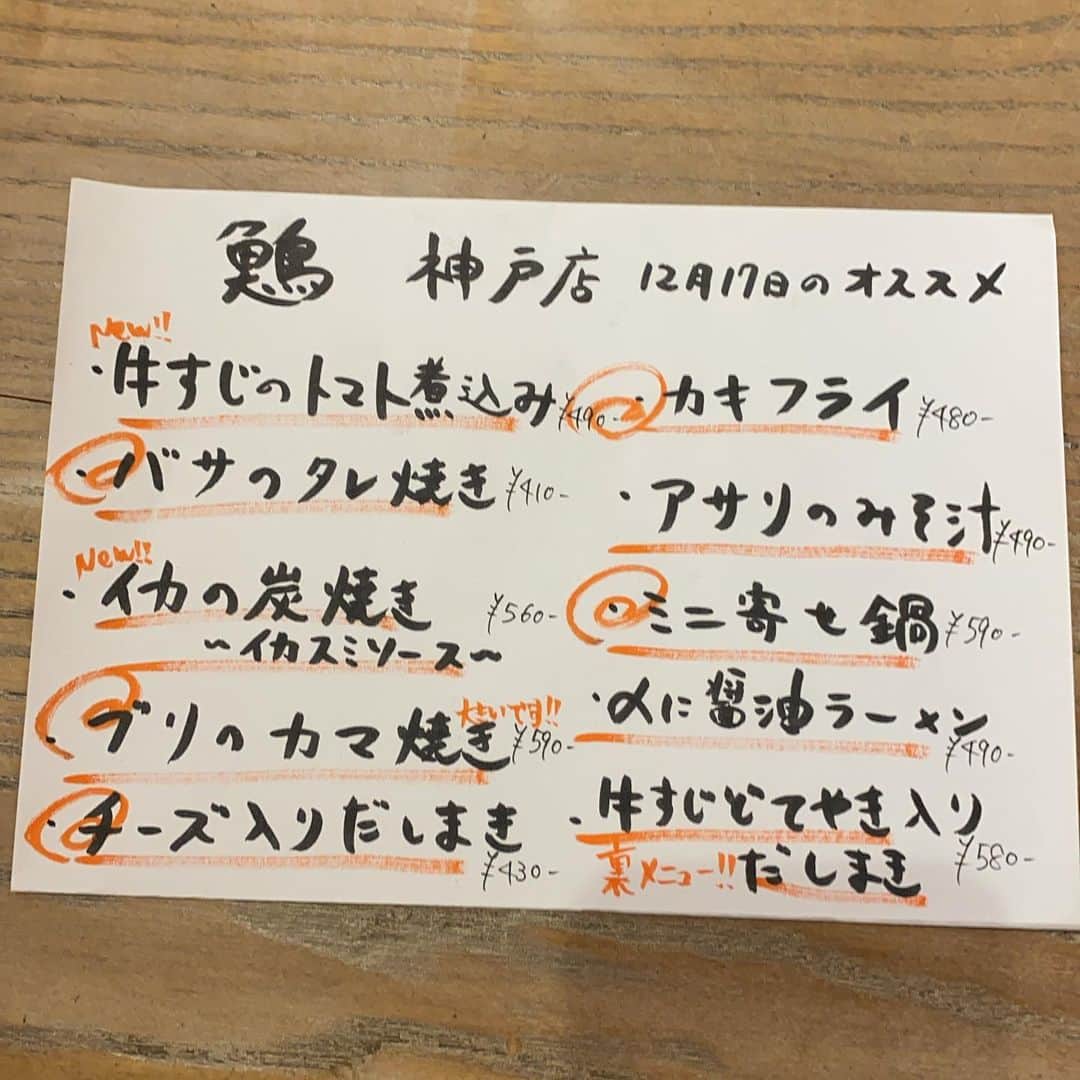 鷠 神戸店 12月17日のオススメ
New!!
・牛すじのトマト煮込み ¥490-
・バサのタレ焼き ¥410-
New!!
・イカの炭焼き ¥560-
～イカスミソース～
大きいです!!
・ブリのカマ焼き ¥590-
・チーズ入りだしまき ¥430-
・カキフライ ¥480-
・アサリのみそ汁 ¥490-
・ミニ寄せ鍋 ¥590-
・〆に醤油ラーメン ¥490-
・牛すじどてやき入り
裏メニュー!! だしまき ¥580-